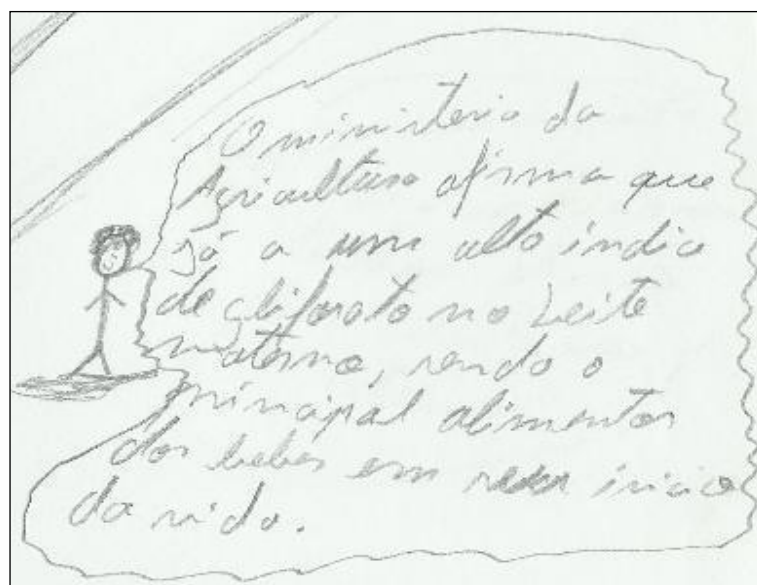 O ministerio da
Agricultura afirma que
já a um alto índice
de glifosato no Leite
materno, sendo o
principal alimentos
dos bebes em seu inicio
da vida.